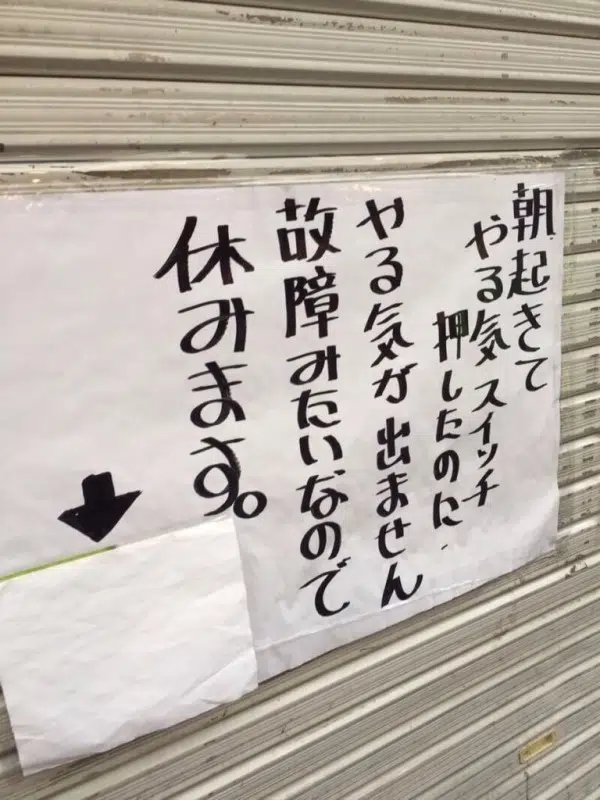 朝起きて
やる気スイッチ
押したのに
やる気が出ません
故障みたいなので
休みます。